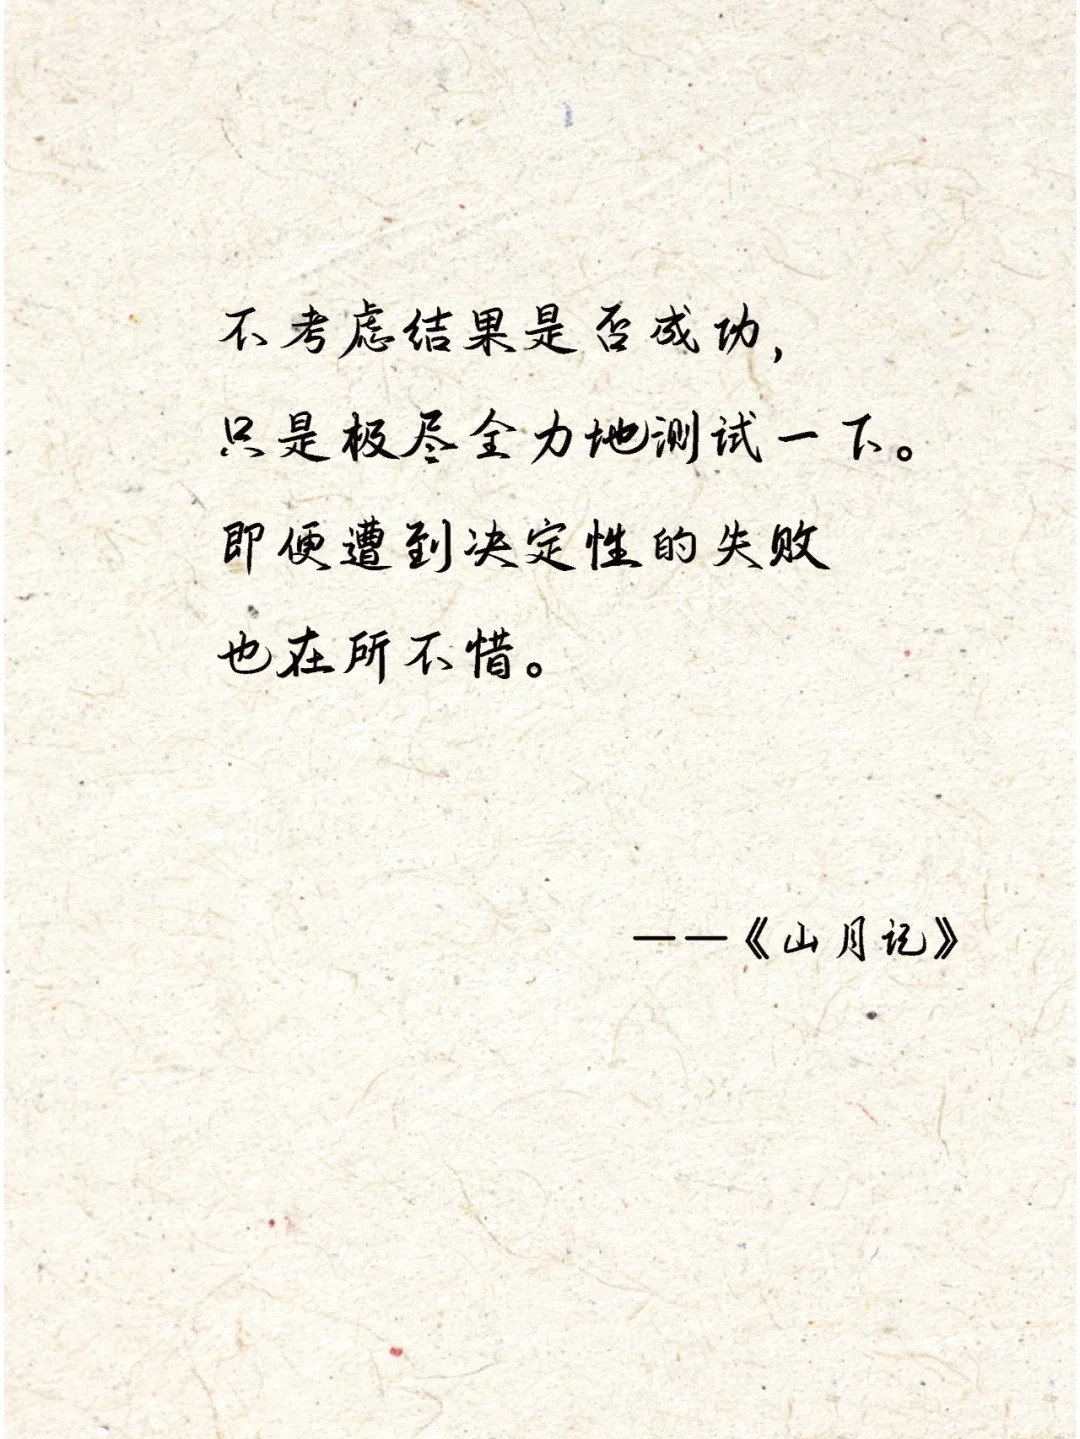 不考虑结果是否成功，
只是极尽全力地测试一下。
即便遭到决定性的失败
也在所不惜。
——《山月记》